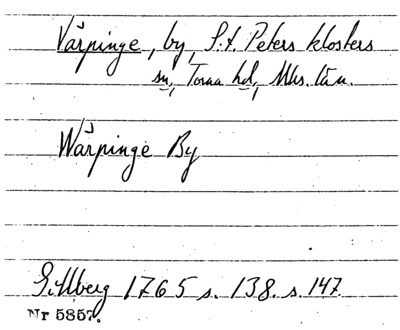 Värpinge, by, S:t. Peters klosters
sn, Torna hd, Mhs. län.
Wärpinge By
Gillberg 1765 s. 138. s. 147.
Nr 5857.